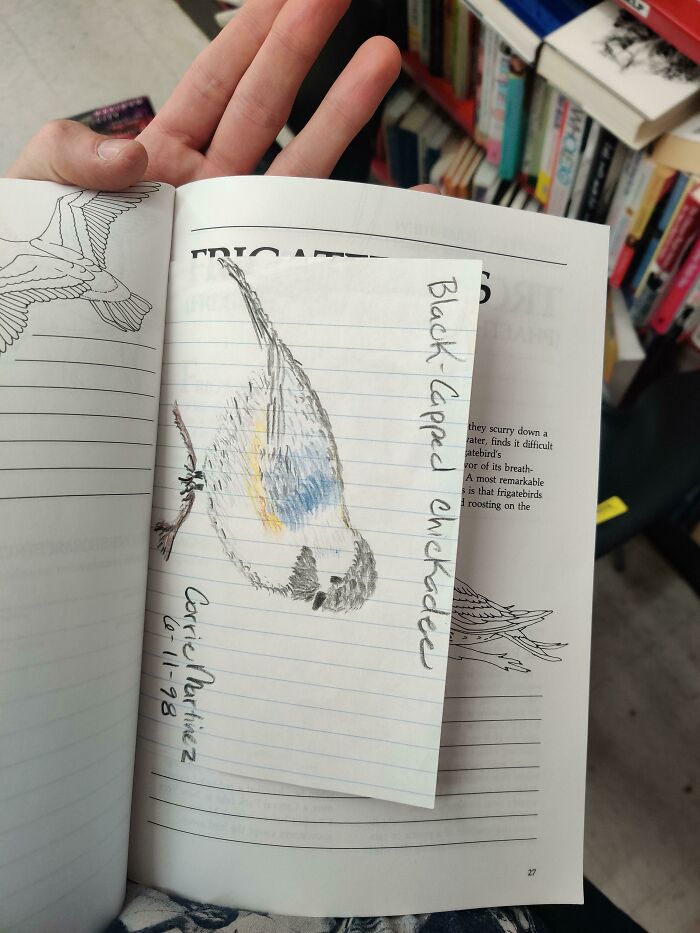 Black-Capped Chickadee
Carrie Martinez
6-11-98
they scurry down a
water, finds it difficult
gatebird's
vor of its breath-
A most remarkable
s is that frigatebirds
d roosting on the
27